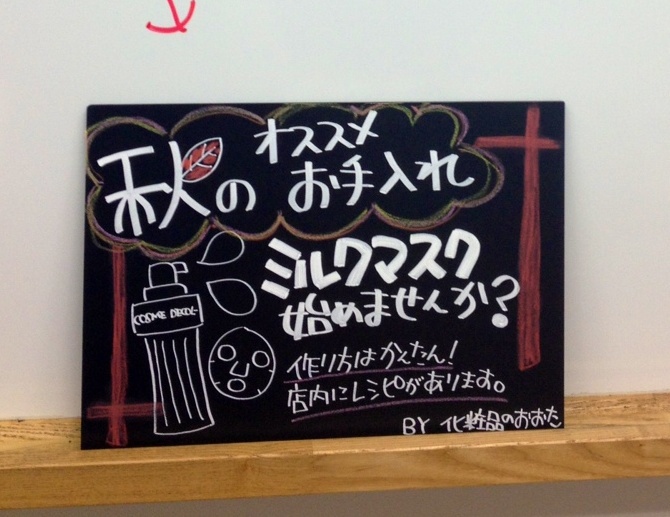 秋の
オススメ
お手入れ
ミルクマスク
始めませんか?
COSME DECO
作り方はかんたん!
店内にレシピがあります。
BY 化粧品のおおた